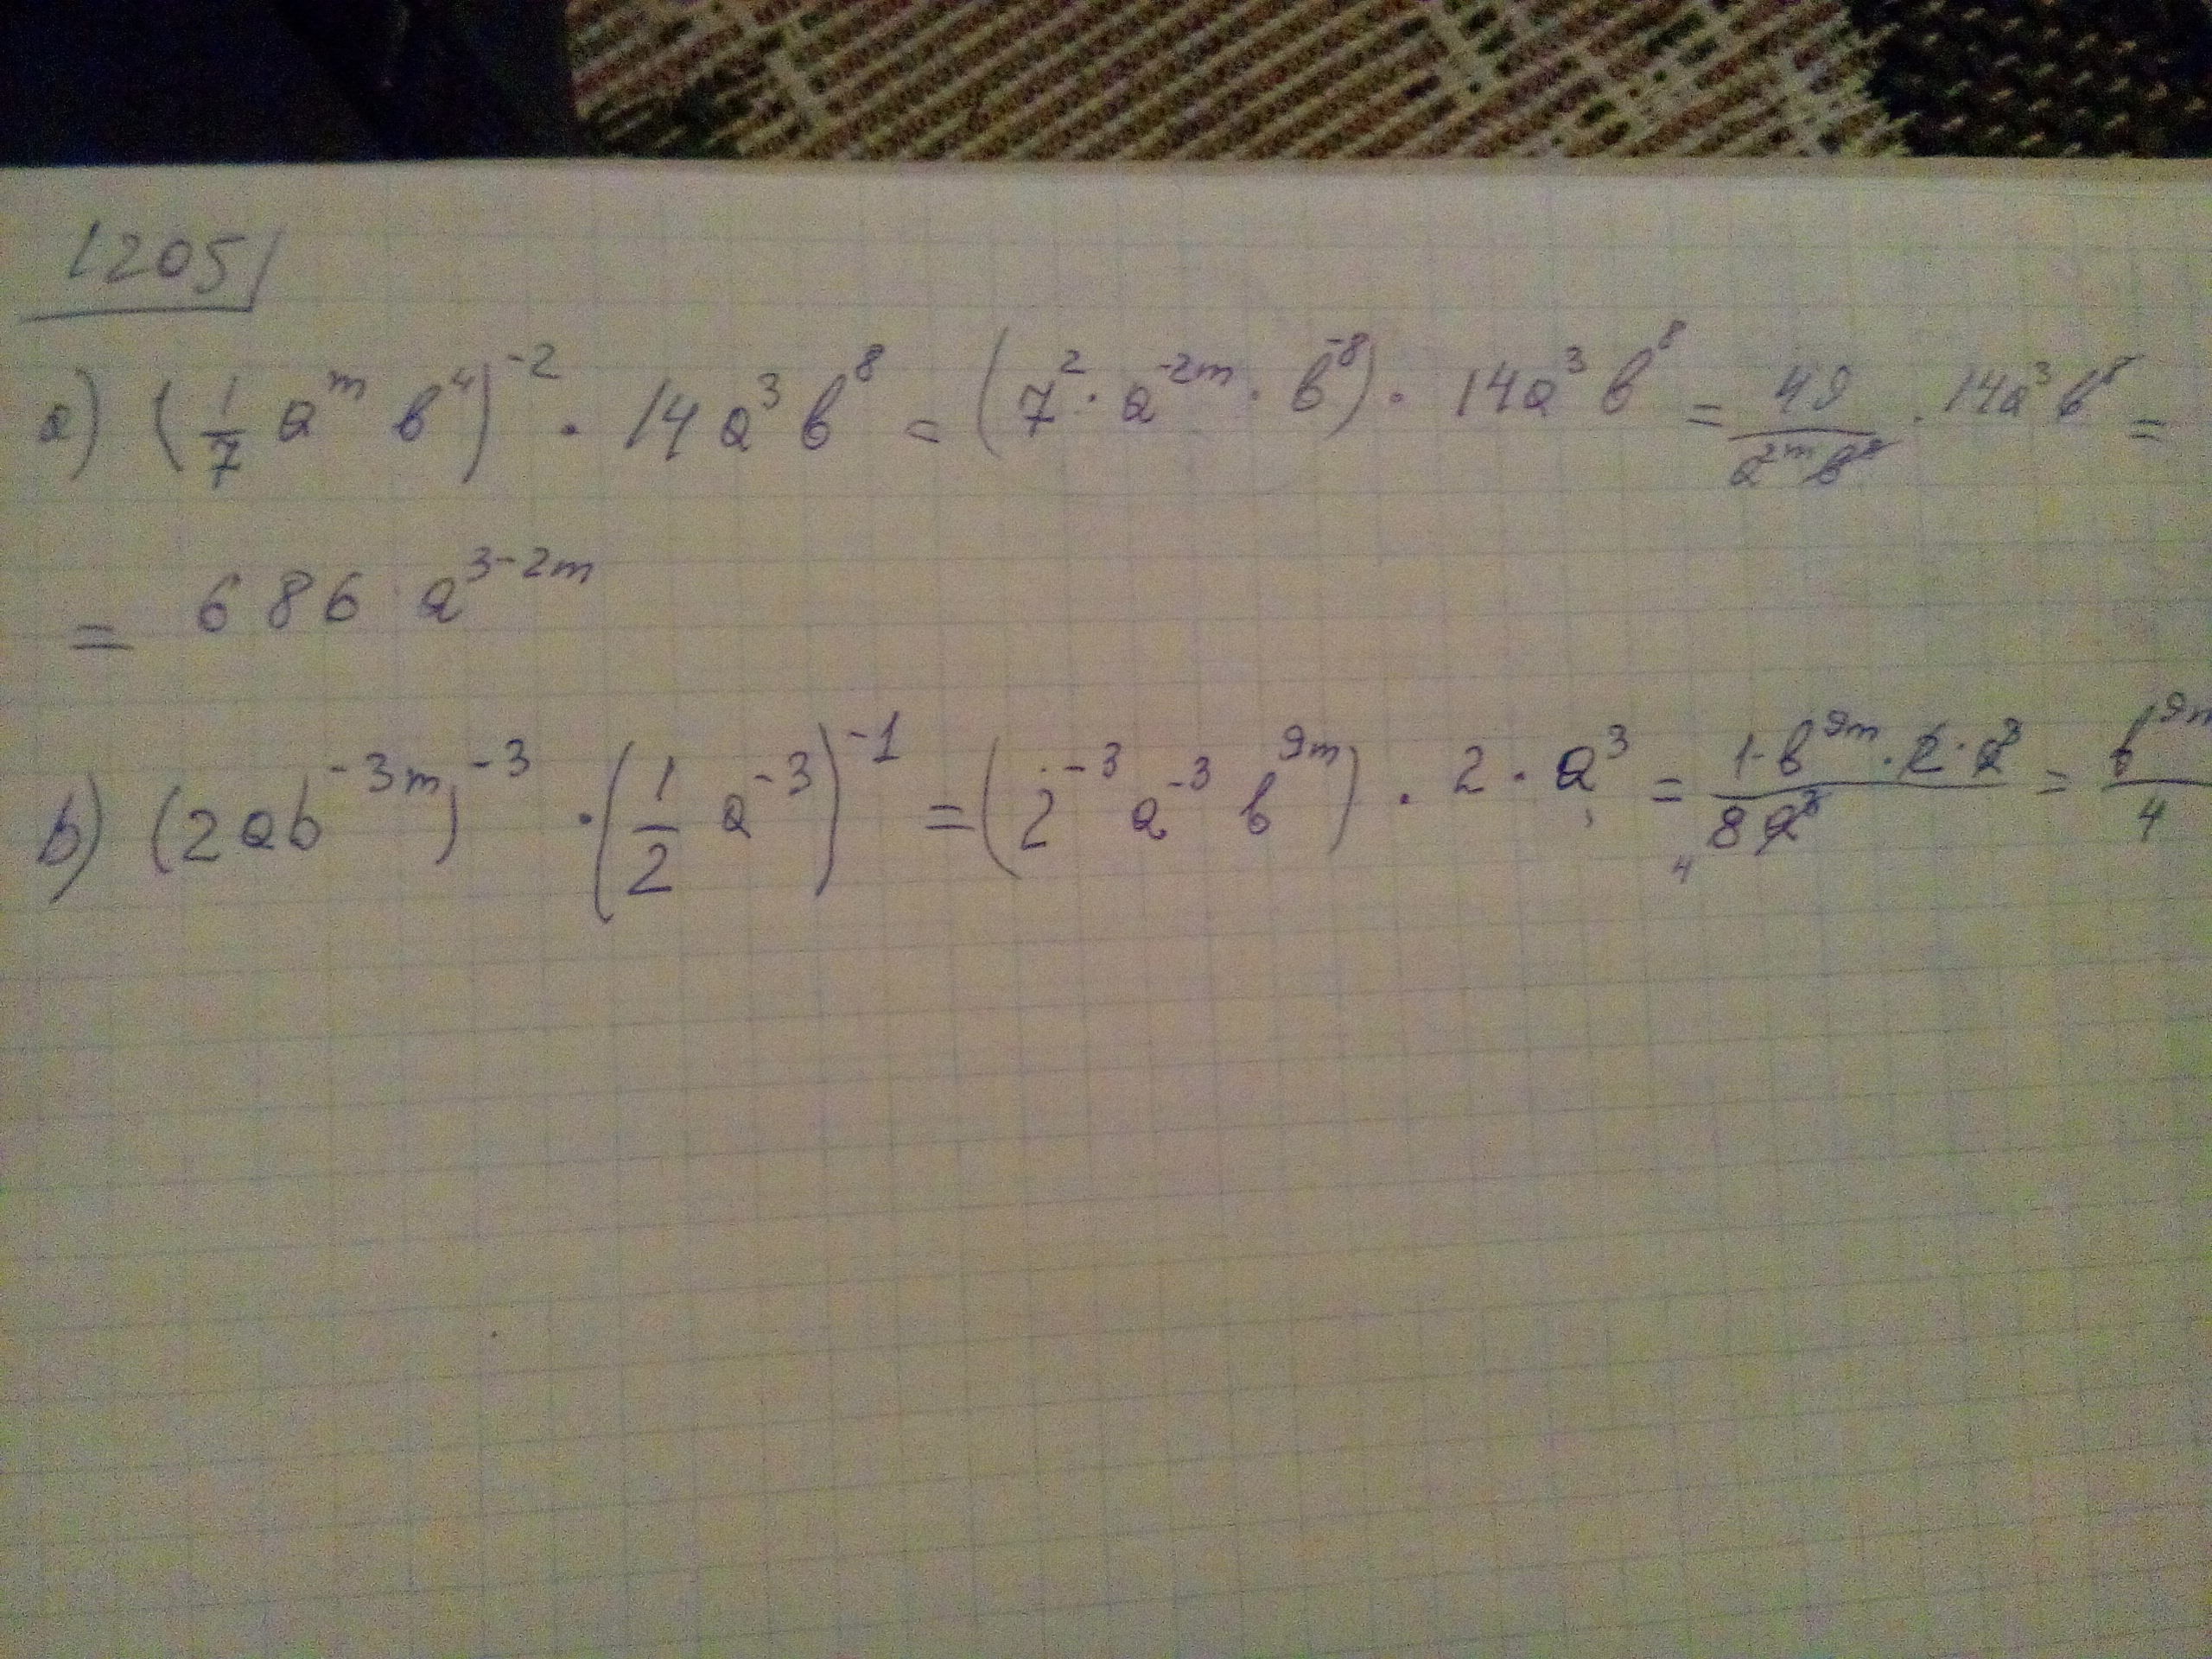 1205
a) (1/7 a^m b^4)^-2 · 14 a^3 b^8 = (7^2 · a^-2m · b^-8) · 14a^3 b^8 = 49/(a^2m b^8) · 14a^3 b^8 =
= 686 a^3-2m
b) (2ab^-3m)^-3 · (1/2 a^-3)^-1 = (2^-3 a^-3 b^9m) · 2 · a^3 = (1·b^9m · 2 · a^3)/(8a^3) = b^9m/4
4